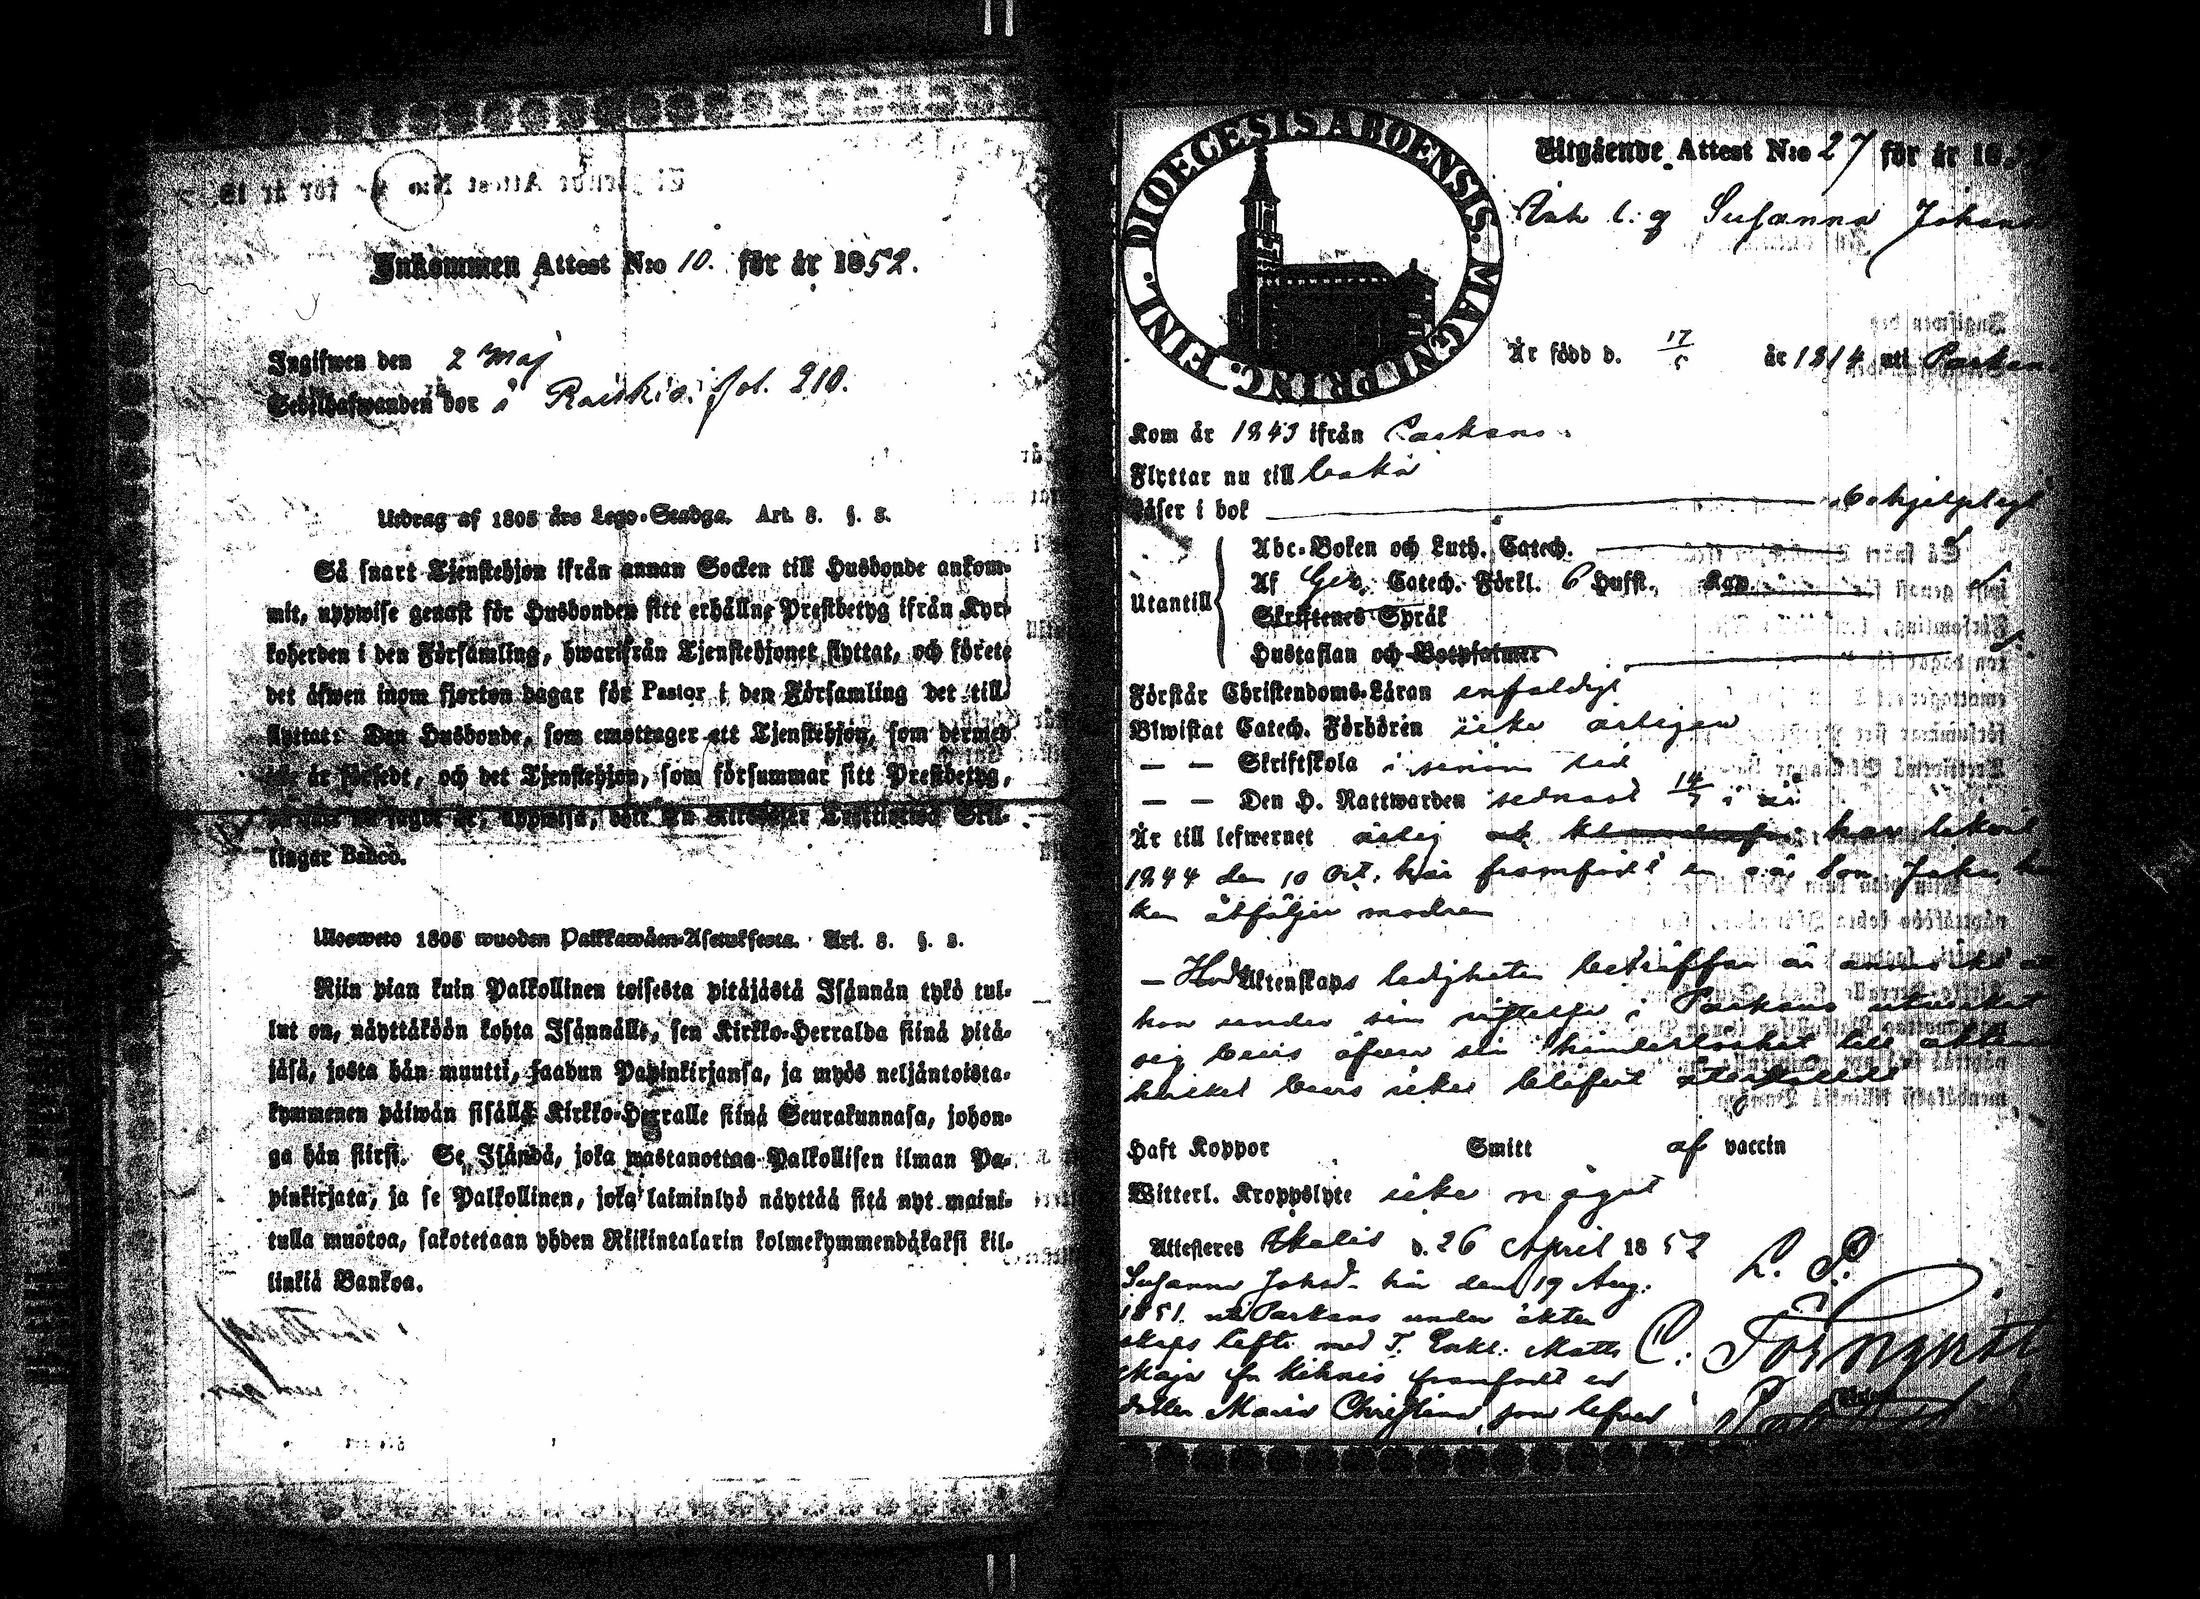 Inkommen Attest N:o 10. för år 1852.
Ingifwen den 2 Maj
Sedelhafwanden bor i Raiskio, fol. 210.
Utdrag af 1805 års Lego-Stadga. Art. 8. §. 8.
Så snart Tjenstehjon ifrån annan Socken till Husbonde ankom-
mit, uppwise genast för Husbonden sitt erhållne Prestbetyg ifrån Kyr-
koherden i den Församling, hwarifrån Tjenstehjonet flyttat, och förete
det äfwen inom fjorton dagar för Pastor i den Församling det till-
flyttat: Den Husbonde, som emottager ett Tjenstehjon, som dermed
är försedt, och det Tjenstehjon, som försummar sitt Prestbetyg,
lingar Banco.
Ulosweto 1805 wuoden Palkkawäen-Asetuksesta. Art. 8. §. 8.
Niin pian kuin Palkollinen toisesta pitäjästä Isännän tykö tul-
lut on, näyttäköön kohta Isännälle, sen Kirkko-Herralda siinä pitä-
jäsä, josta hän muutti, saadun Papinkirjansa, ja myös neljäntoista-
kymmenen päiwän sisällä Kirkko-Herralle siinä Seurakunnasa, johon-
ga hän siirsi. Se Isändä, joka wastanottaa Palkollisen ilman Pa-
pinkirjata, ja se Palkollinen, joka laiminlyö näyttää sitä nyt maini-
tulla muotoa, sakotetaan yhden Riikintalarin kolmekymmendäkaksi kil-
linkiä Bankoa.
FINL. DIOECESIS ABOENSIS. MAGNI PRINC.
Utgående Attest N:o 27 för år 18
Susanna
Är född d. 17/5 år 1814 uti Parkano
Kom år 1843 ifrån Parkano.
Flyttar nu till
Läser i bok behjelpligt
Utantill
Abc-Boken och Luth. Catech.
Af Catech. Förkl. 6 Hufst., Kap.
Skriftenes Språk
Hustaflan och Botpsalmer
Förstår Christendoms-Läran enfaldigt
Biwistat Catech. Förhören icke årligen
— — Skriftskola i senare tid
— — Den H. Nattwarden sednast 14/7 i
Är till lefwernet ärlig har
1844 den 10 Oct. här framfödt en oä. Son, Joh.
ken åtföljer modren
— Hwad Äktenskaps ledigheten beträffar är
hon under sin vistelse i Parkano utwerkat
sig bevis öfwer sin hinderlöshet till
hvilket bevis icke blifvit återstäldt
Haft Koppor Smitt af vaccin
Witterl. Kroppslyte icke något
Attesteres Ikalis d. 26 April 1852
L. S.
Susanna Johsd. har den 19 Aug.
1851. uti Parkano under äkten
skaps löfte med T. Enkl. Matts
framfödt en
dotter Maria Christina, som lefver